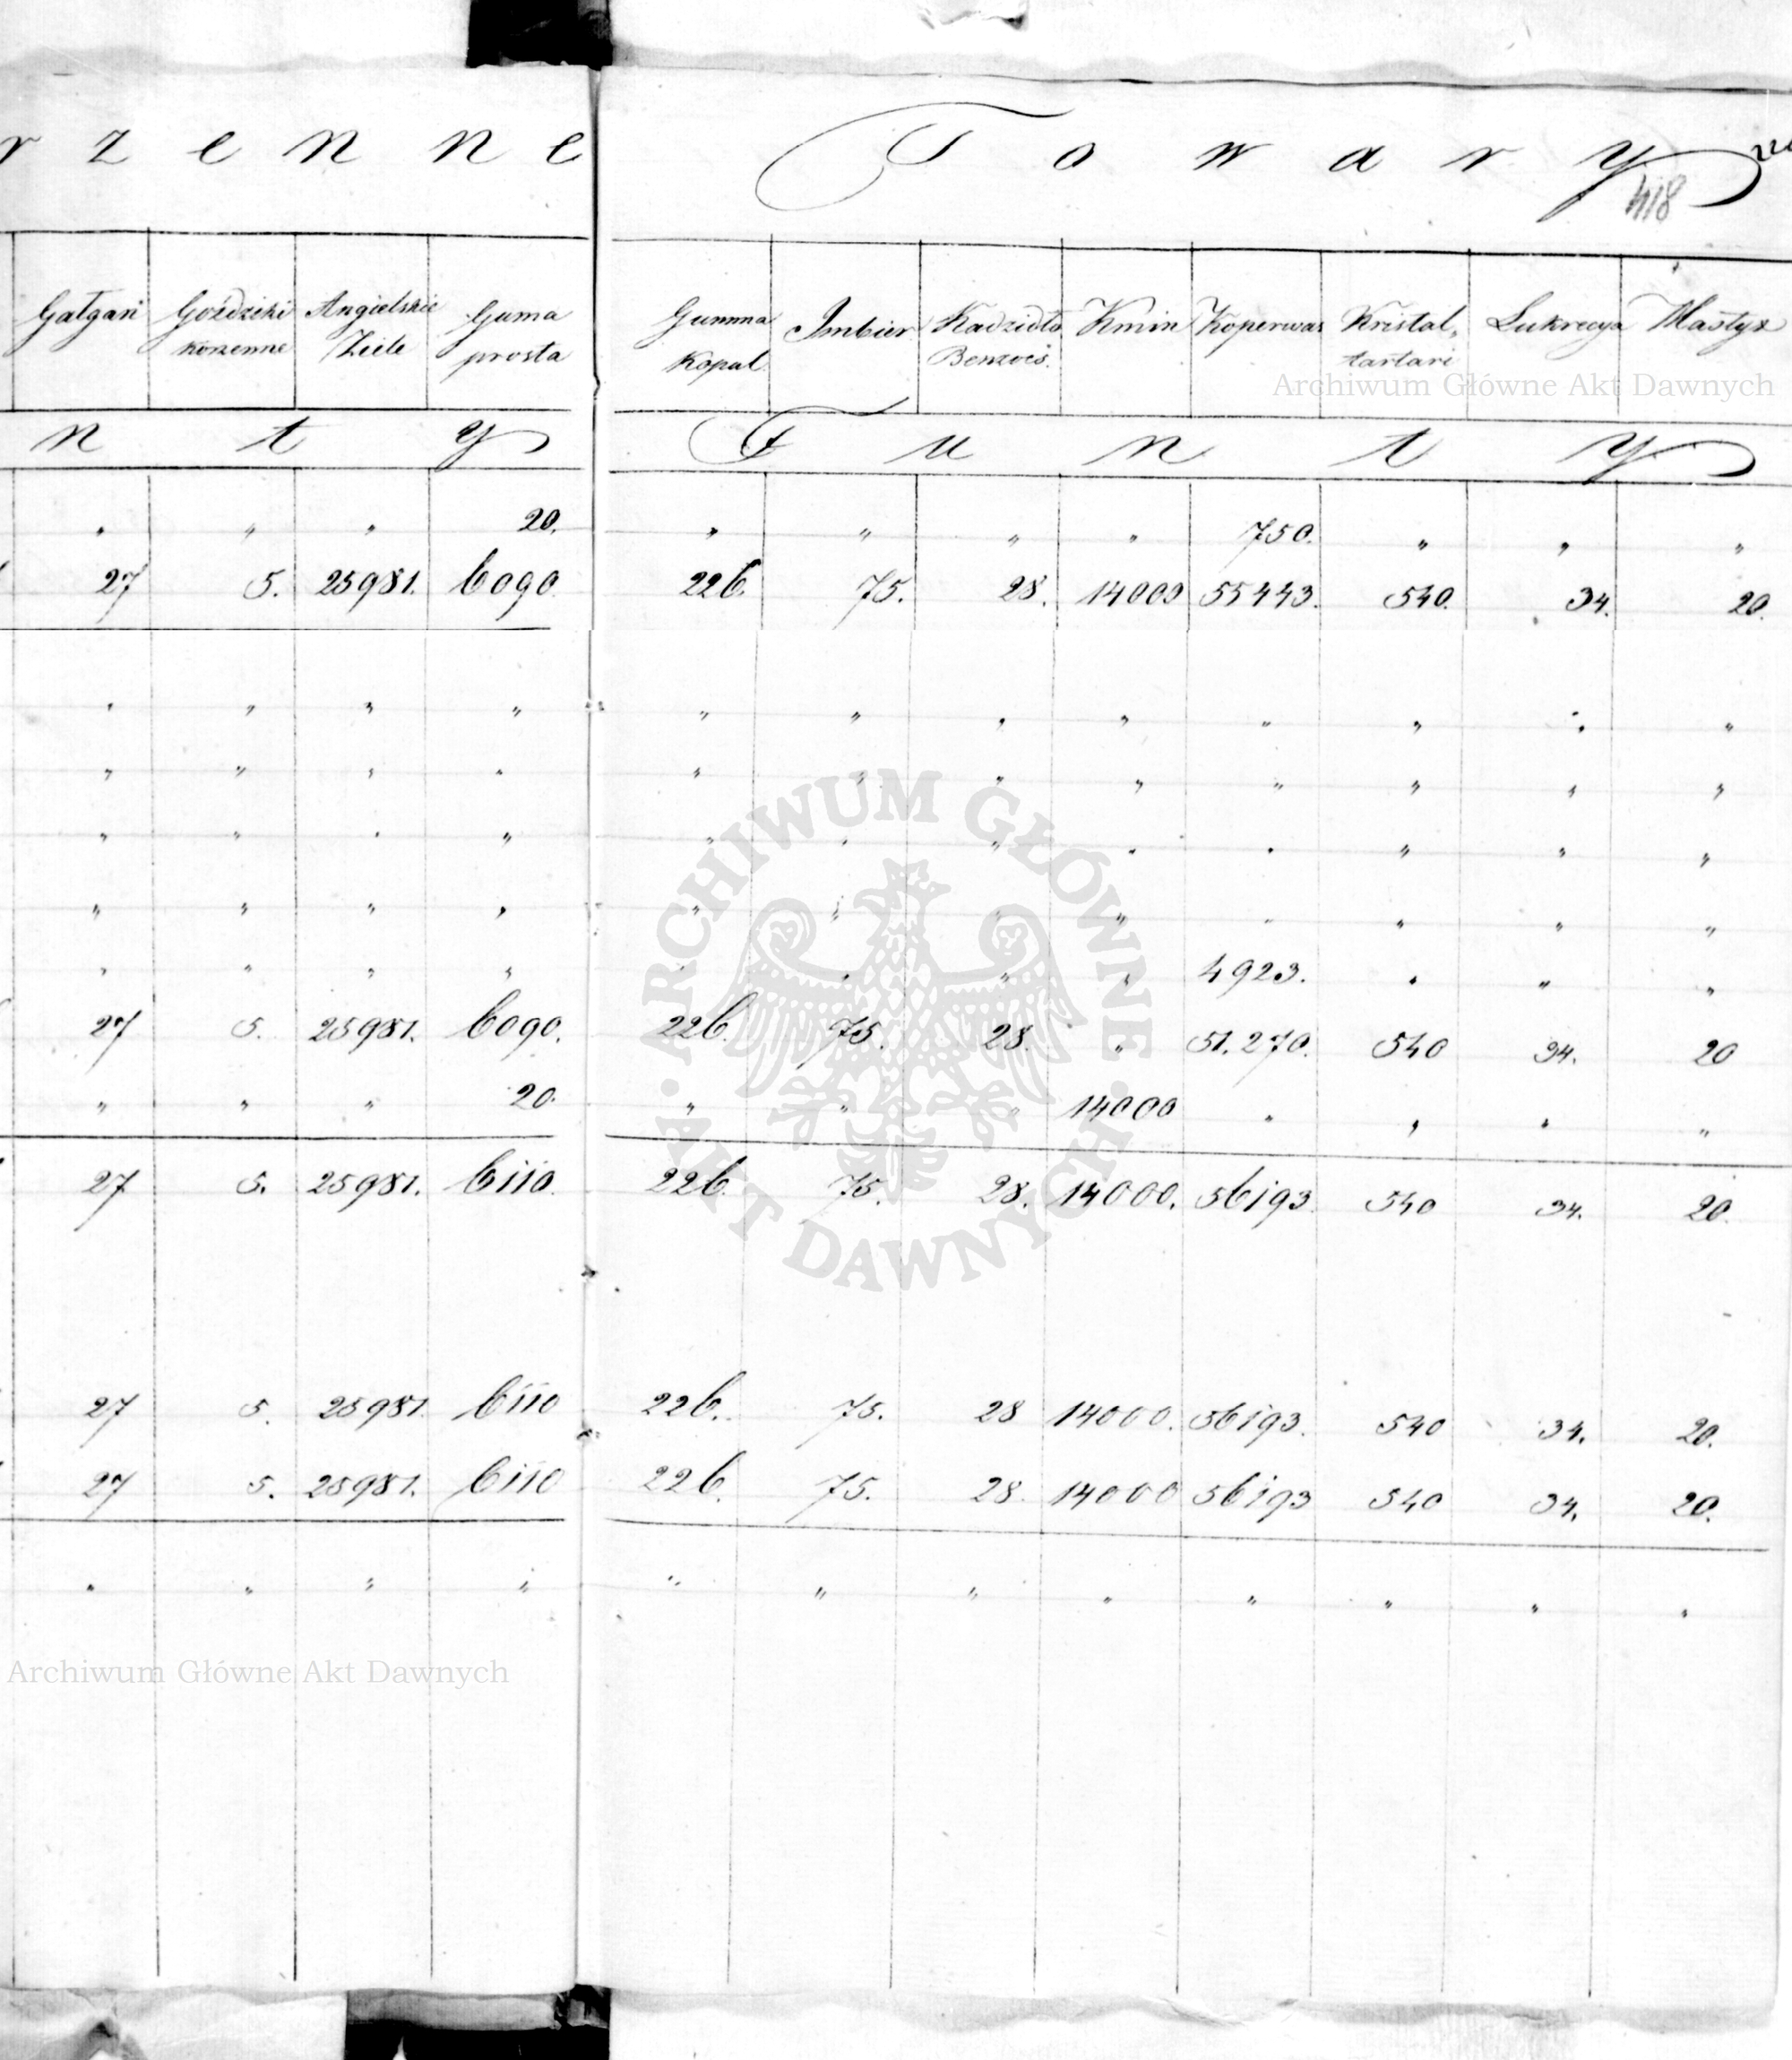 r z e n n e T o w a r y
418
Gałgan Goździki korzenne Angielskie Ziele Guma prosta Gumma Kopal Imbier Kadzidło Benzoes. Kmin Koperwas Kristal, tartari Lukrecya Mastyx
Archiwum Główne Akt Dawnych
n t y F u n t y
" " " 20. " " " " 750. " " "
27 5. 25981. 6090 226. 75. 28. 14000 55443. 540. 34. 20.
" " " " " " " " " " " "
" " " " " " " " " " " "
" " " " " " " " " " " "
" " " " " " " " " " " "
" " " " " " " " 4923. " " "
27 5. 25981. 6090. 226. 75. 28. " 51.270. 540 34. 20
" " " 20. " " " 14000 " " " "
27 5. 25981. 6110. 226. 75. 28. 14000. 56193. 540 34. 20.
27 5. 25981. 6110 226. 75. 28 14000. 56193. 540 34. 20.
27 5. 25981. 6110 226. 75. 28. 14000 56193 540 34. 20.
" " " " " " " " " " " "
Archiwum Główne Akt Dawnych
ARCHIWUM GŁÓWNE · AKT DAWNYCH ·